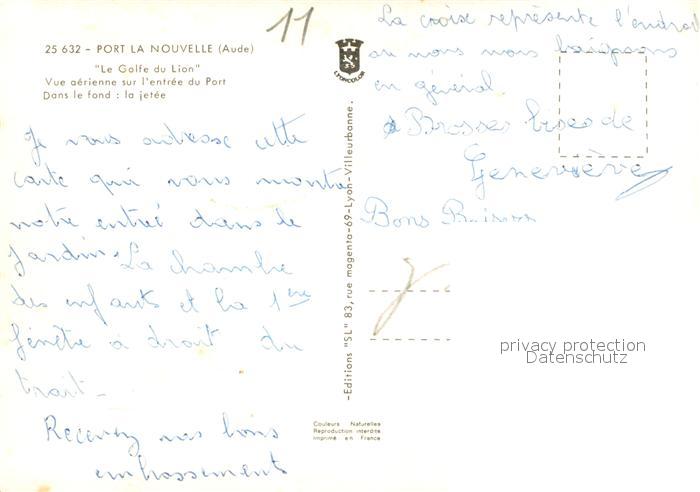 11
25 632 – PORT LA NOUVELLE (Aude)
"Le Golfe du Lion"
Vue aérienne sur l'entrée du Port
Dans le fond : la jetée
LYONCOLOR
Je vous adresse cette
carte qui vous montre
notre entrée dans le
jardin. La chambre
des enfants et la 1ère
fenêtre à droit du
trait –
Recevez nos bons
embrassements
–Editions "SL" 83, rue magenta–69–Lyon–Villeurbanne.
La croise représente l'endroit
ou nous nous baignons
en général
Grosses bises de
Geneviève
Bons Baisers
Couleurs Naturelles
Reproduction interdite
Imprimé en France
privacy protection
Datenschutz